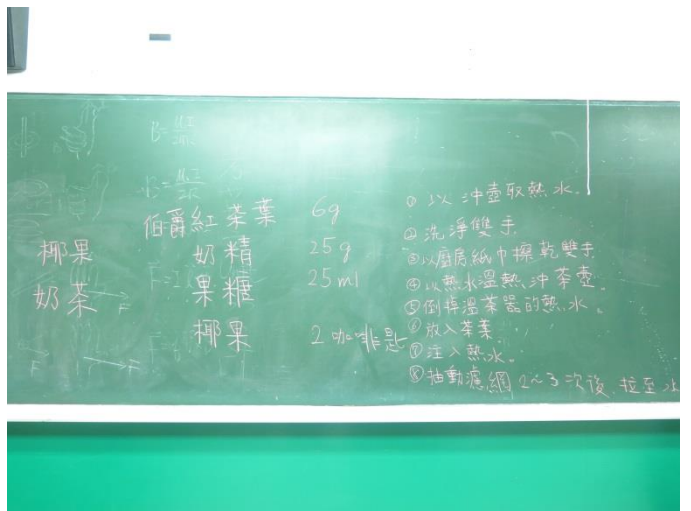 椰果
奶茶
伯爵紅茶葉 6g
奶精 25g
果糖 25ml
椰果 2咖啡匙
①以沖壺取熱水。
②洗淨雙手
③以廚房紙巾擦乾雙手
④以熱水溫熱沖茶壺。
⑤倒掉溫茶器的熱水。
⑥放入茶葉
⑦注入熱水。
⑧抽動濾網2~3次後,拉至水
B=
F
F